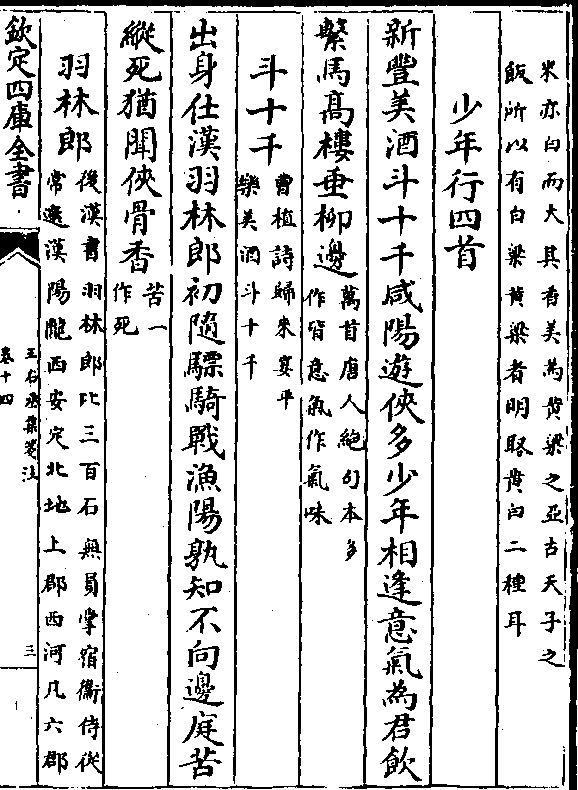 米亦白而大其香美為黄粱之亞古天子之
飯所以有白粱黄粱者明取黄白二種耳
少年行四首
新豐美酒斗十千咸陽遊俠多少年相逢意氣為君飲
繫馬髙樓垂柳邊萬首唐人絶句本多
作皆意氣作氣味
斗十千曹植詩歸来宴平
樂美酒斗十千
出身仕漢羽林郎初隨驃騎戰漁陽孰知不向邊庭苦
縱死猶聞俠骨香苦一
作死
羽林郎後漢書羽林郎比三百石無員掌宿衞侍従
常選漢陽隴西安定北地上郡西河凡六郡
欽定四庫全書
王右丞集箋注
卷十四
三